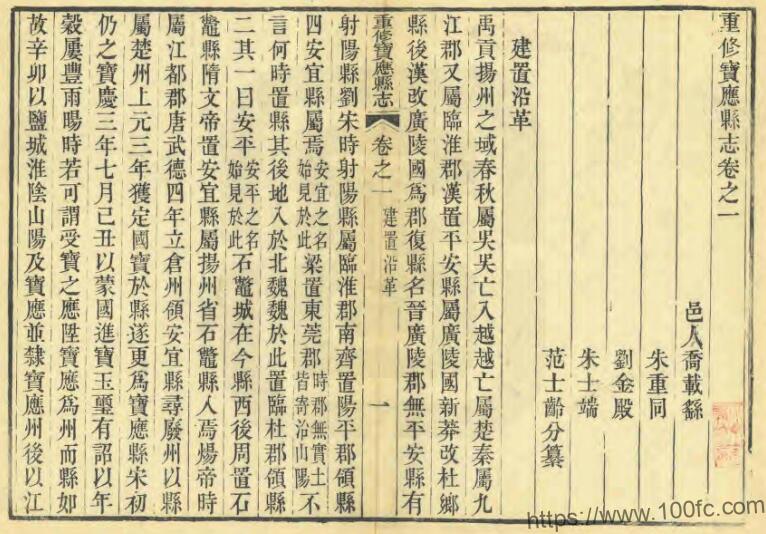 重修寶應縣志卷之一
邑人喬載繇
朱重同
劉金殿
朱士端
范士齡分纂
建置沿革
禹貢揚州之域春秋屬吳吳亡入越越亡屬楚秦屬九
江郡又屬臨淮郡漢置平安縣屬廣陵國新莽改杜鄉
縣後漢改廣陵國爲郡復縣名晉廣陵郡無平安縣有
重修寶應縣志 卷之一 建置沿革 一
射陽縣劉宋時射陽縣屬臨淮郡南齊置陽平郡領縣
四安宜縣屬焉安宜之名始見於此梁置東莞郡時郡無實土皆寄治山陽不
言何時置縣其後地入於北魏魏於此置臨杜郡領縣
二其一曰安平安平之名始見於此石鼈城在今縣西後周置石
鼈縣隋文帝置安宜縣屬揚州省石鼈縣入焉煬帝時
屬江都郡唐武德四年立倉州領安宜縣尋廢州以縣
屬楚州上元三年獲定國寶於縣遂更爲寶應縣宋初
仍之寶慶三年七月己丑以蒙國進寶玉璽有詔以年
穀屢豐雨暘時若可謂受寶之應陞寶應爲州而縣如
故辛卯以鹽城淮陰山陽及寶應並隸寶應州後以江
https://www.100fc.com